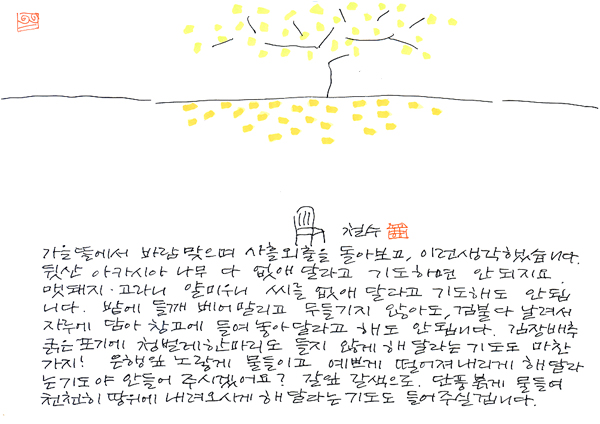 철수
가을 뜰에서 바람 맞으며 사흘 외출을 돌아보고, 이런 생각 했습니다.
뒷산 아카시아 나무 다 없애 달라고 기도하면 안되지요.
멧돼지·고라니 얄미우니 씨를 없애 달라고 기도해도 안됩
니다. 밭에 들깨 베어 말리고 두들기지 않아도, 검불 다 날려서
자루에 담아 창고에 들여 놓아 달라고 해도 안됩니다. 김장배추
굵은 포기에 청벌레 한마리도 들지 않게 해 달라는 기도도 마찬
가지! 은행잎 노랗게 물들이고 예쁘게 떨어져 내리게 해 달라
는 기도야 안들어 주시겠어요? 갈잎 갈색으로. 단풍 붉게 물들여
천천히 땅위에 내려오시게 해 달라는 기도도 들어주실겁니다.